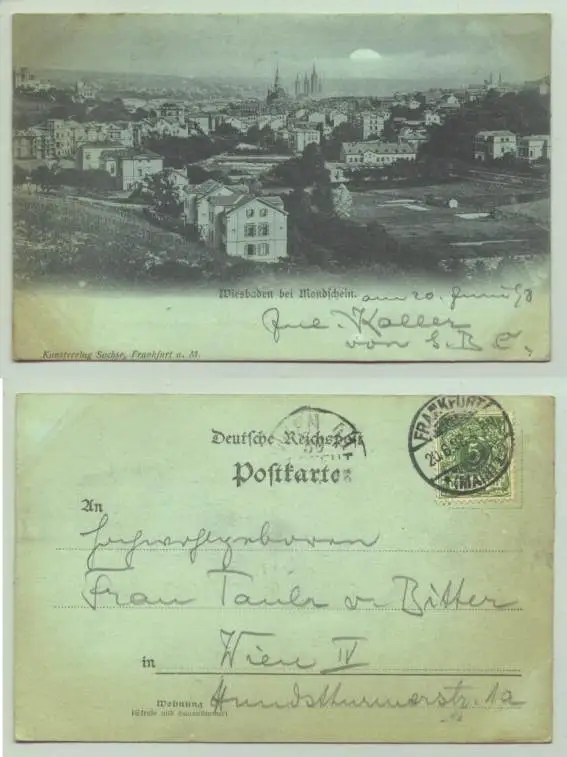 Wiesbaden bei Mondschein. am 20. Juni 98
Kunstverlag Sachse, Frankfurt a. M.
Deutsche Reichspost
Postkarte
FRANKFURT
20.6.98
1 (MAIN)
5
An
Hochwohlgeboren
Frau Paula v. Bitter
in Wien IV
Wohnung Hundsthurmerstr. 1a
(Straße und Hausnummer)